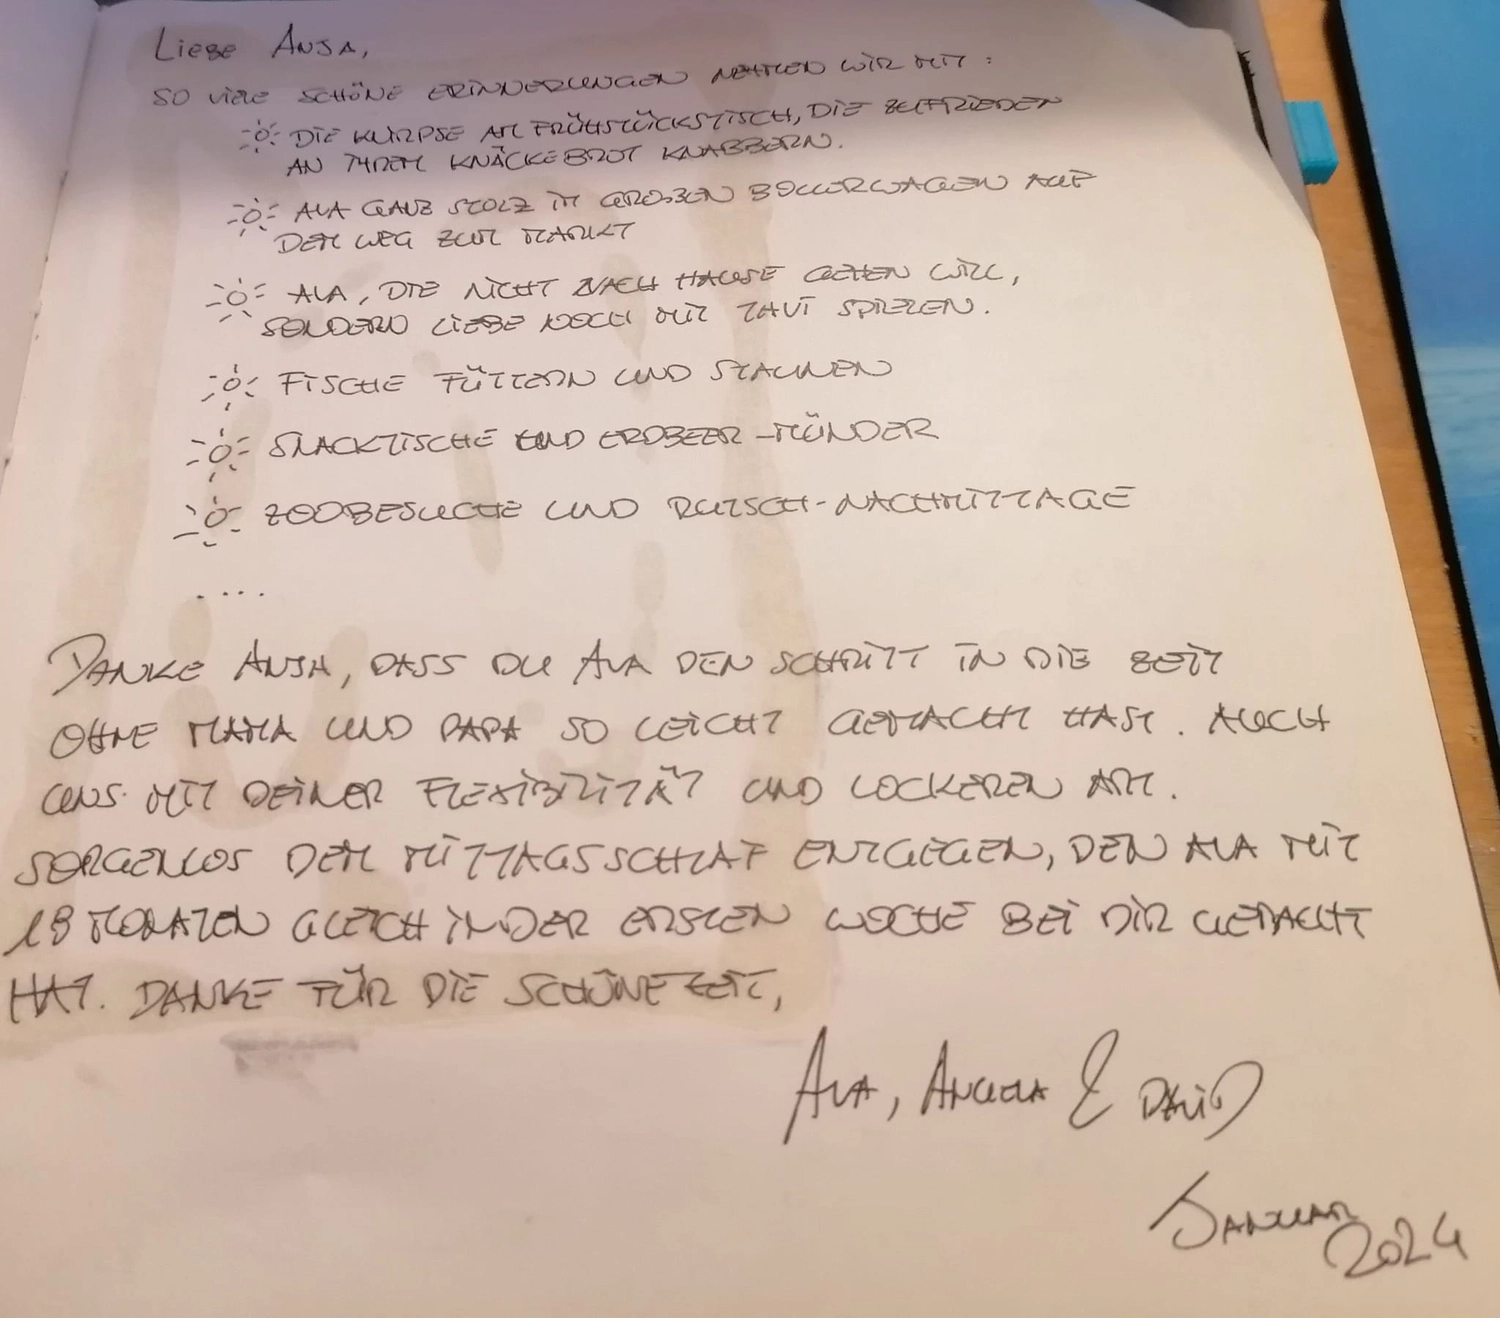 Liebe Anja,
so viele schöne Erinnerungen nehmen wir mit:
die Knirpse am Frühstückstisch, die zufrieden
an ihrem Knäckebrot knabbern.
Ava ganz stolz im großen Bollerwagen auf
dem Weg zum Markt
Ava, die nicht nach Hause gehen will,
sondern liebe noch mit spielen.
Fische füttern und staunen
Snacktische und Erdbeer-Münder
Zoobesuche und Rutsch-Nachmittage
....
Danke Anja, dass du Ava den Schritt in die Zeit
ohne Mama und Papa so leicht gemacht hast. Auch
uns mit deiner Flexibilität und lockeren Art.
Sorgenlos dem Mittagsschlaf entgegen, den Ava mit
18 Monaten gleich in der ersten Woche bei dir gemacht
hat. Danke für die schöne Zeit,
Ava, Angela & David
Januar
2024